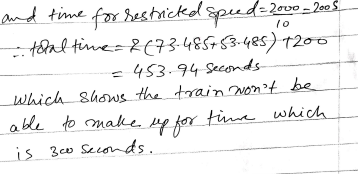 and time for restricted speed = 2000 = 200s
10
∴ total time = 2(73.485+53.485) +200
= 453.94 seconds
which shows the train won't be
able to make up for time which
is 300 seconds.